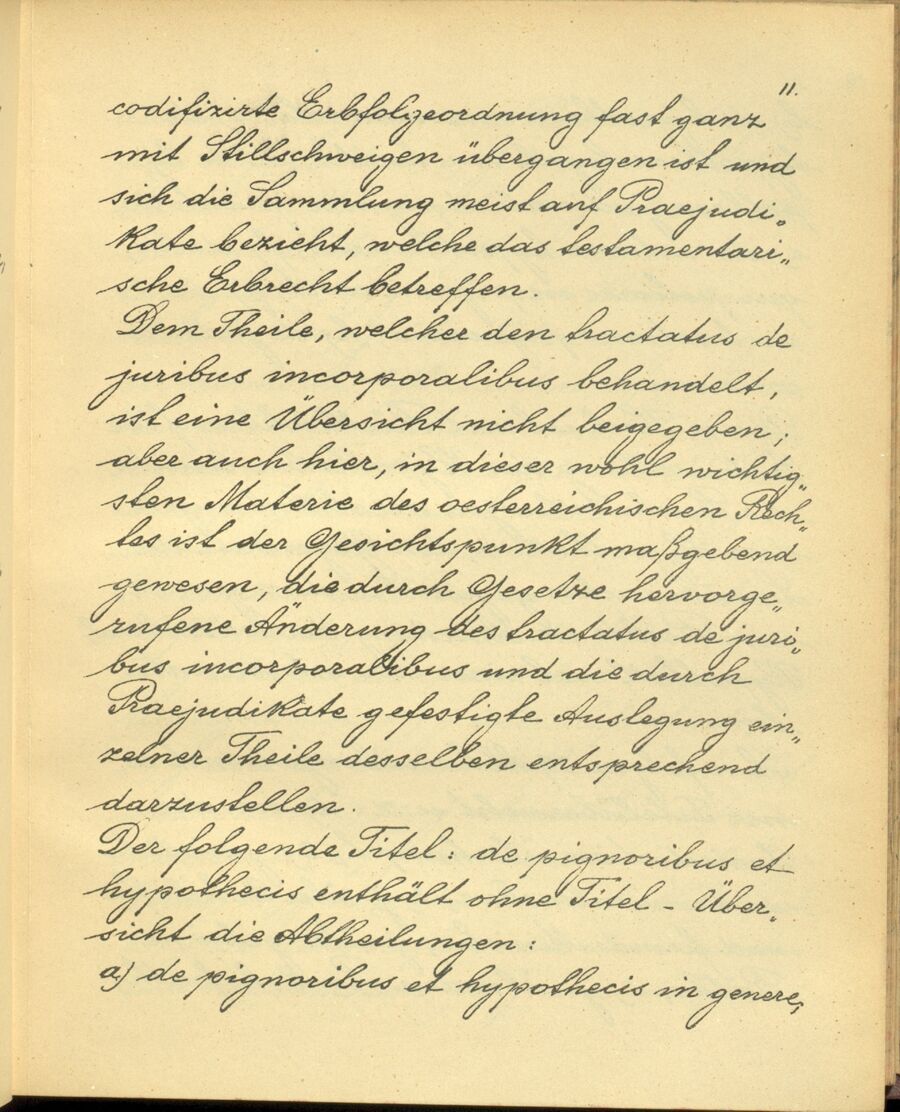 11.
codifizirte Erbfolgeordnung fast ganz
mit Stillschweigen übergangen ist und
sich die Sammlung meist auf Praejudi„
kate bezieht, welche das testamentari„
sche Erbrecht betreffen.
Dem Theile, welcher den tractatus de
juribus incorporalibus behandelt,
ist eine Übersicht nicht beigegeben;
aber auch hier, in dieser wohl wichtig„
sten Materie des oesterreichischen Rech„
tes ist der Gesichtspunkt maßgebend
gewesen, die durch Gesetze hervorge„
rufene Änderung des tractatus de juri„
bus incorporalibus und die durch
Praejudikate gefestigte Auslegung ein„
zelner Theile desselben entsprechend
darzustellen.
Der folgende Titel: de pignoribus et
hypothecis enthält ohne Titel - Über„
sicht die Abtheilungen:
a) de pignoribus et hypothecis in genere,